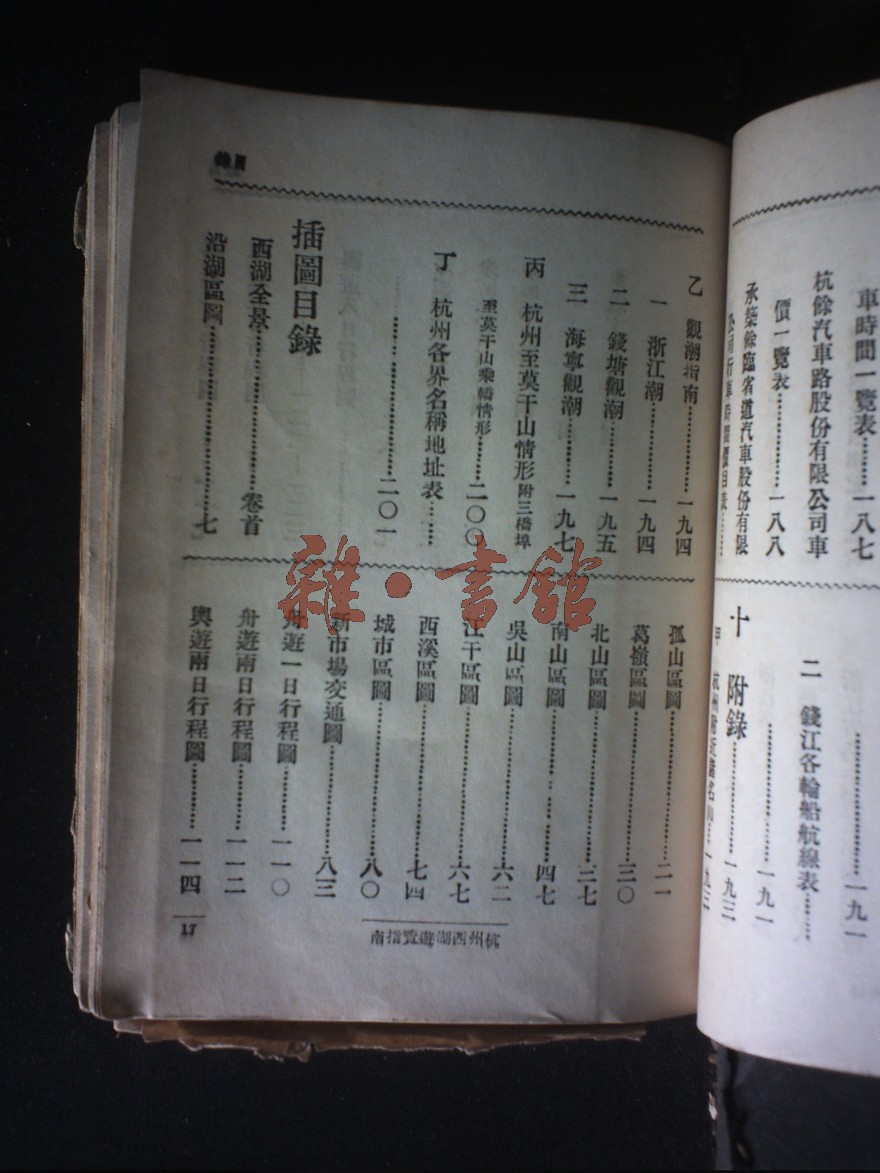 車時間一覽表………一八七
杭餘汽車路股份有限公司車
價一覽表…………一八八
承築餘臨省道汽車股份有限
公司行車時間價目表………
一九一
二 錢江各輪船航線表………
一九一
十 附錄………一九三
甲 杭州附近諸名山…一九三
目錄
乙 觀潮指南…………一九四
一 浙江潮…………一九四
二 錢塘觀潮………一九五
三 海寧觀潮………一九七
丙 杭州至莫干山情形附三橋埠
至莫干山乘轎情形………二〇〇
丁 杭州各界名稱地址表……
…………二〇一
插圖目錄
西湖全景…………卷首
沿湖區圖…………七
孤山區圖…………二一
葛嶺區圖…………三〇
北山區圖…………三七
南山區圖…………四七
吳山區圖…………六二
江干區圖…………六七
西溪區圖…………七四
城市區圖…………八〇
新市場交通圖…………八三
舟遊一日行程圖………一一〇
舟遊兩日行程圖………一一二
輿遊兩日行程圖………一一四
杭州西湖遊覽指南
17
雜·書館